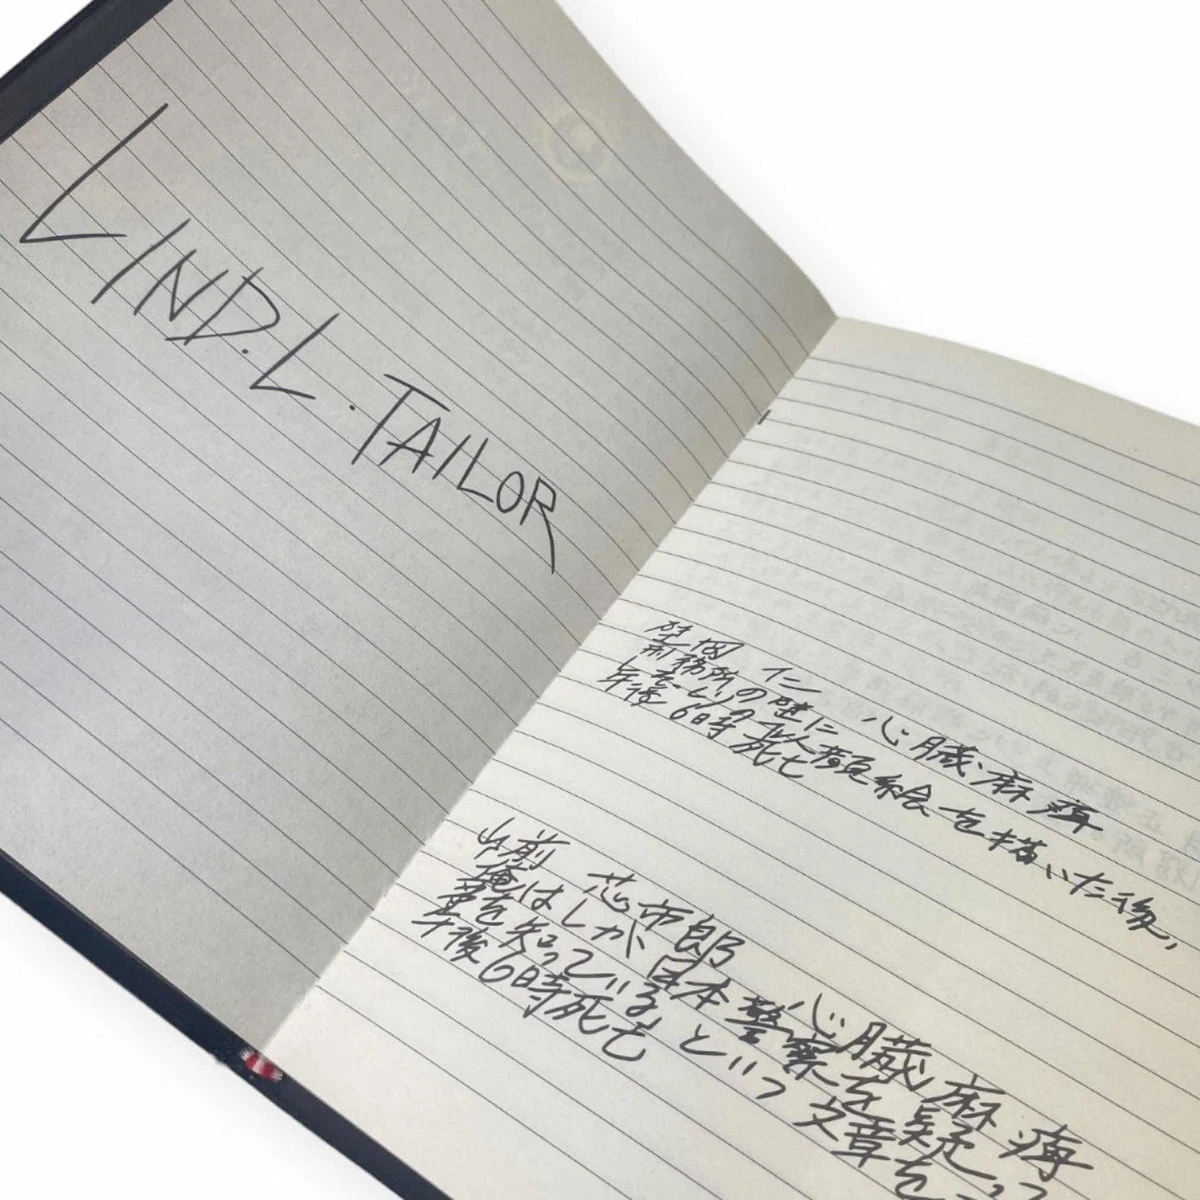 LIND.L.TAILOR
仁 心臓麻痺
刑務所の壁に
似顔絵を描いた後,
午後6時 死亡
山前 芯市郎 心臓麻痺
俺はしか, 日本警察を疑っ
事を知っている という 文章を
午後6時死亡